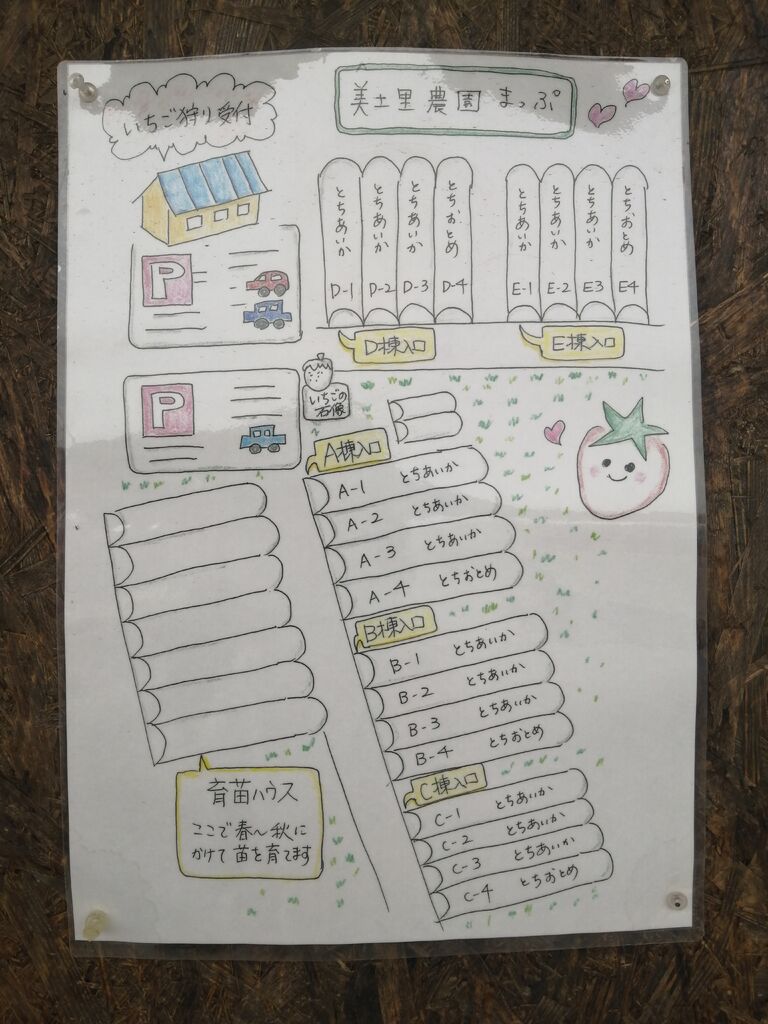 いちご狩り受付
美土里農園 まっぷ
P
P
とちあいか D-1
とちあいか D-2
とちあいか D-3
とちおとめ D-4
とちあいか E-1
とちあいか E-2
とちあいか E3
とちおとめ E4
D棟入口
E棟入口
いちごの
石像
A棟入口
A-1 とちあいか
A-2 とちあいか
A-3 とちあいか
A-4 とちおとめ
B棟入口
B-1 とちあいか
B-2 とちあいか
B-3 とちあいか
B-4 とちおとめ
C棟入口
C-1 とちあいか
C-2 とちあいか
C-3 とちあいか
C-4 とちおとめ
育苗ハウス
ここで春〜秋に
かけて苗を育てます